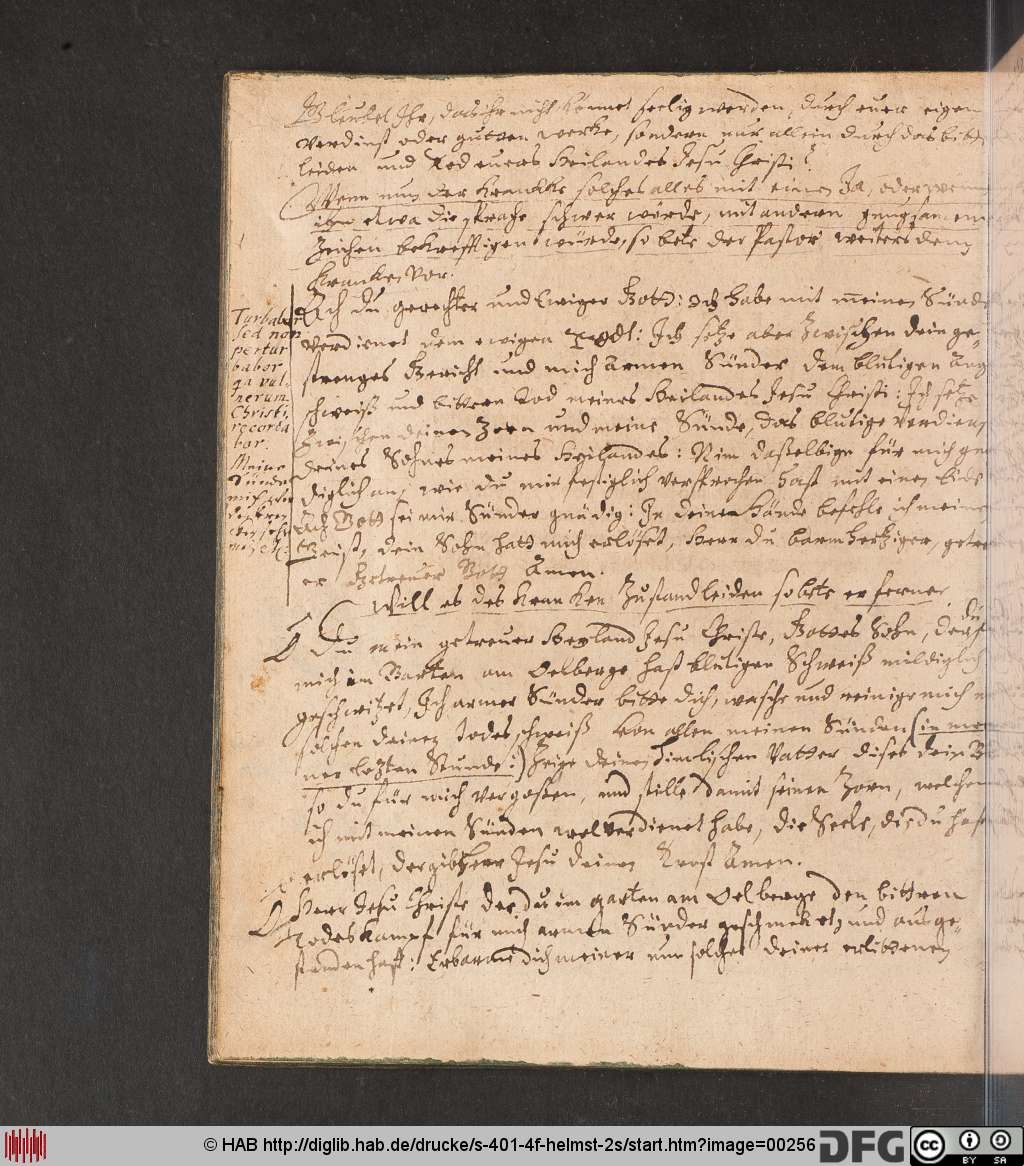 Gleubet Ihr, das ihr nicht könnet seelig werden, durch euer eigen
verdinst oder gutten wercke, sondern nur allein durch das bitt
leiden und Tod euers Heilandes Jesu Christi?
Wenn nun der Krancke solches alles mit einem Ja, oder wenn
ihm etwa die sprache schwer würde, mit andern gnugsamen
Zeichen bekrefftigen würde, so bete der Pastor weiters dem
Krancken vor.
Ach du gerechter und Ewiger Gott: Ich habe mit meinen Sünd
verdienet dem ewigen Todt: Ich setze aber zwischen dein ge-
strenges Gericht und mich Armen Sünder dem blutigen Ang
schweiß und bittern Tod meines Heilandes Jesu Christi: Ich setze
Zwischen deinen Zorn und meine Sünde, das blutige verdiens
deines Sohnes meines Heilandes: Nim dasselbige für mich gne
diglich an, wie du mir festiglich versprochen hast mit einem Eide
Ach Gott sei mir Sünder gnädig: In deine Hände befehle ich meine
Geist, dein Sohn hatt mich erlöset, Herr du barmhertziger, getre
er Getreuer Gott Amen.
Will es des Krancken Zustand leiden so bete er ferner
O Du mein getreuer Heyland Jesu Christe, Gottes Sohn, der du für
mich im Garten am Oelberge hast blutigen Schweiß mildiglich
geschwitzet, Ich armer Sünder bitte dich, wasche und reinige mich
solchen deinen todes schweiß von allen meinen Sünden (in mei
ner letzten Stunde:) Zeige deinem Himlischen Vatter dises dein B
so du für mich vergossen, und stille damit seinen Zorn, welchen
ich mit meinen Sünden wol verdienet habe, die Seele, die du hast
erlöset, der gib Herr Jesu deinen Trost Amen.
O Herr Jesu Christe der du im garten am Oelberge den bittren
Todes Kampf für mich armen Sünder geschmeket und ausge-
standen hast: Erbarme dich meiner um solcher deiner erlittenen
Turbabor
sed non
pertur
babor
qa vul
nerum
Christi
recorda
bor.
Meine
Sünden
mich
© HAB http://diglib.hab.de/drucke/s-401-4f-helmst-2s/start.htm?image=00256
DFG
cc
BY SA